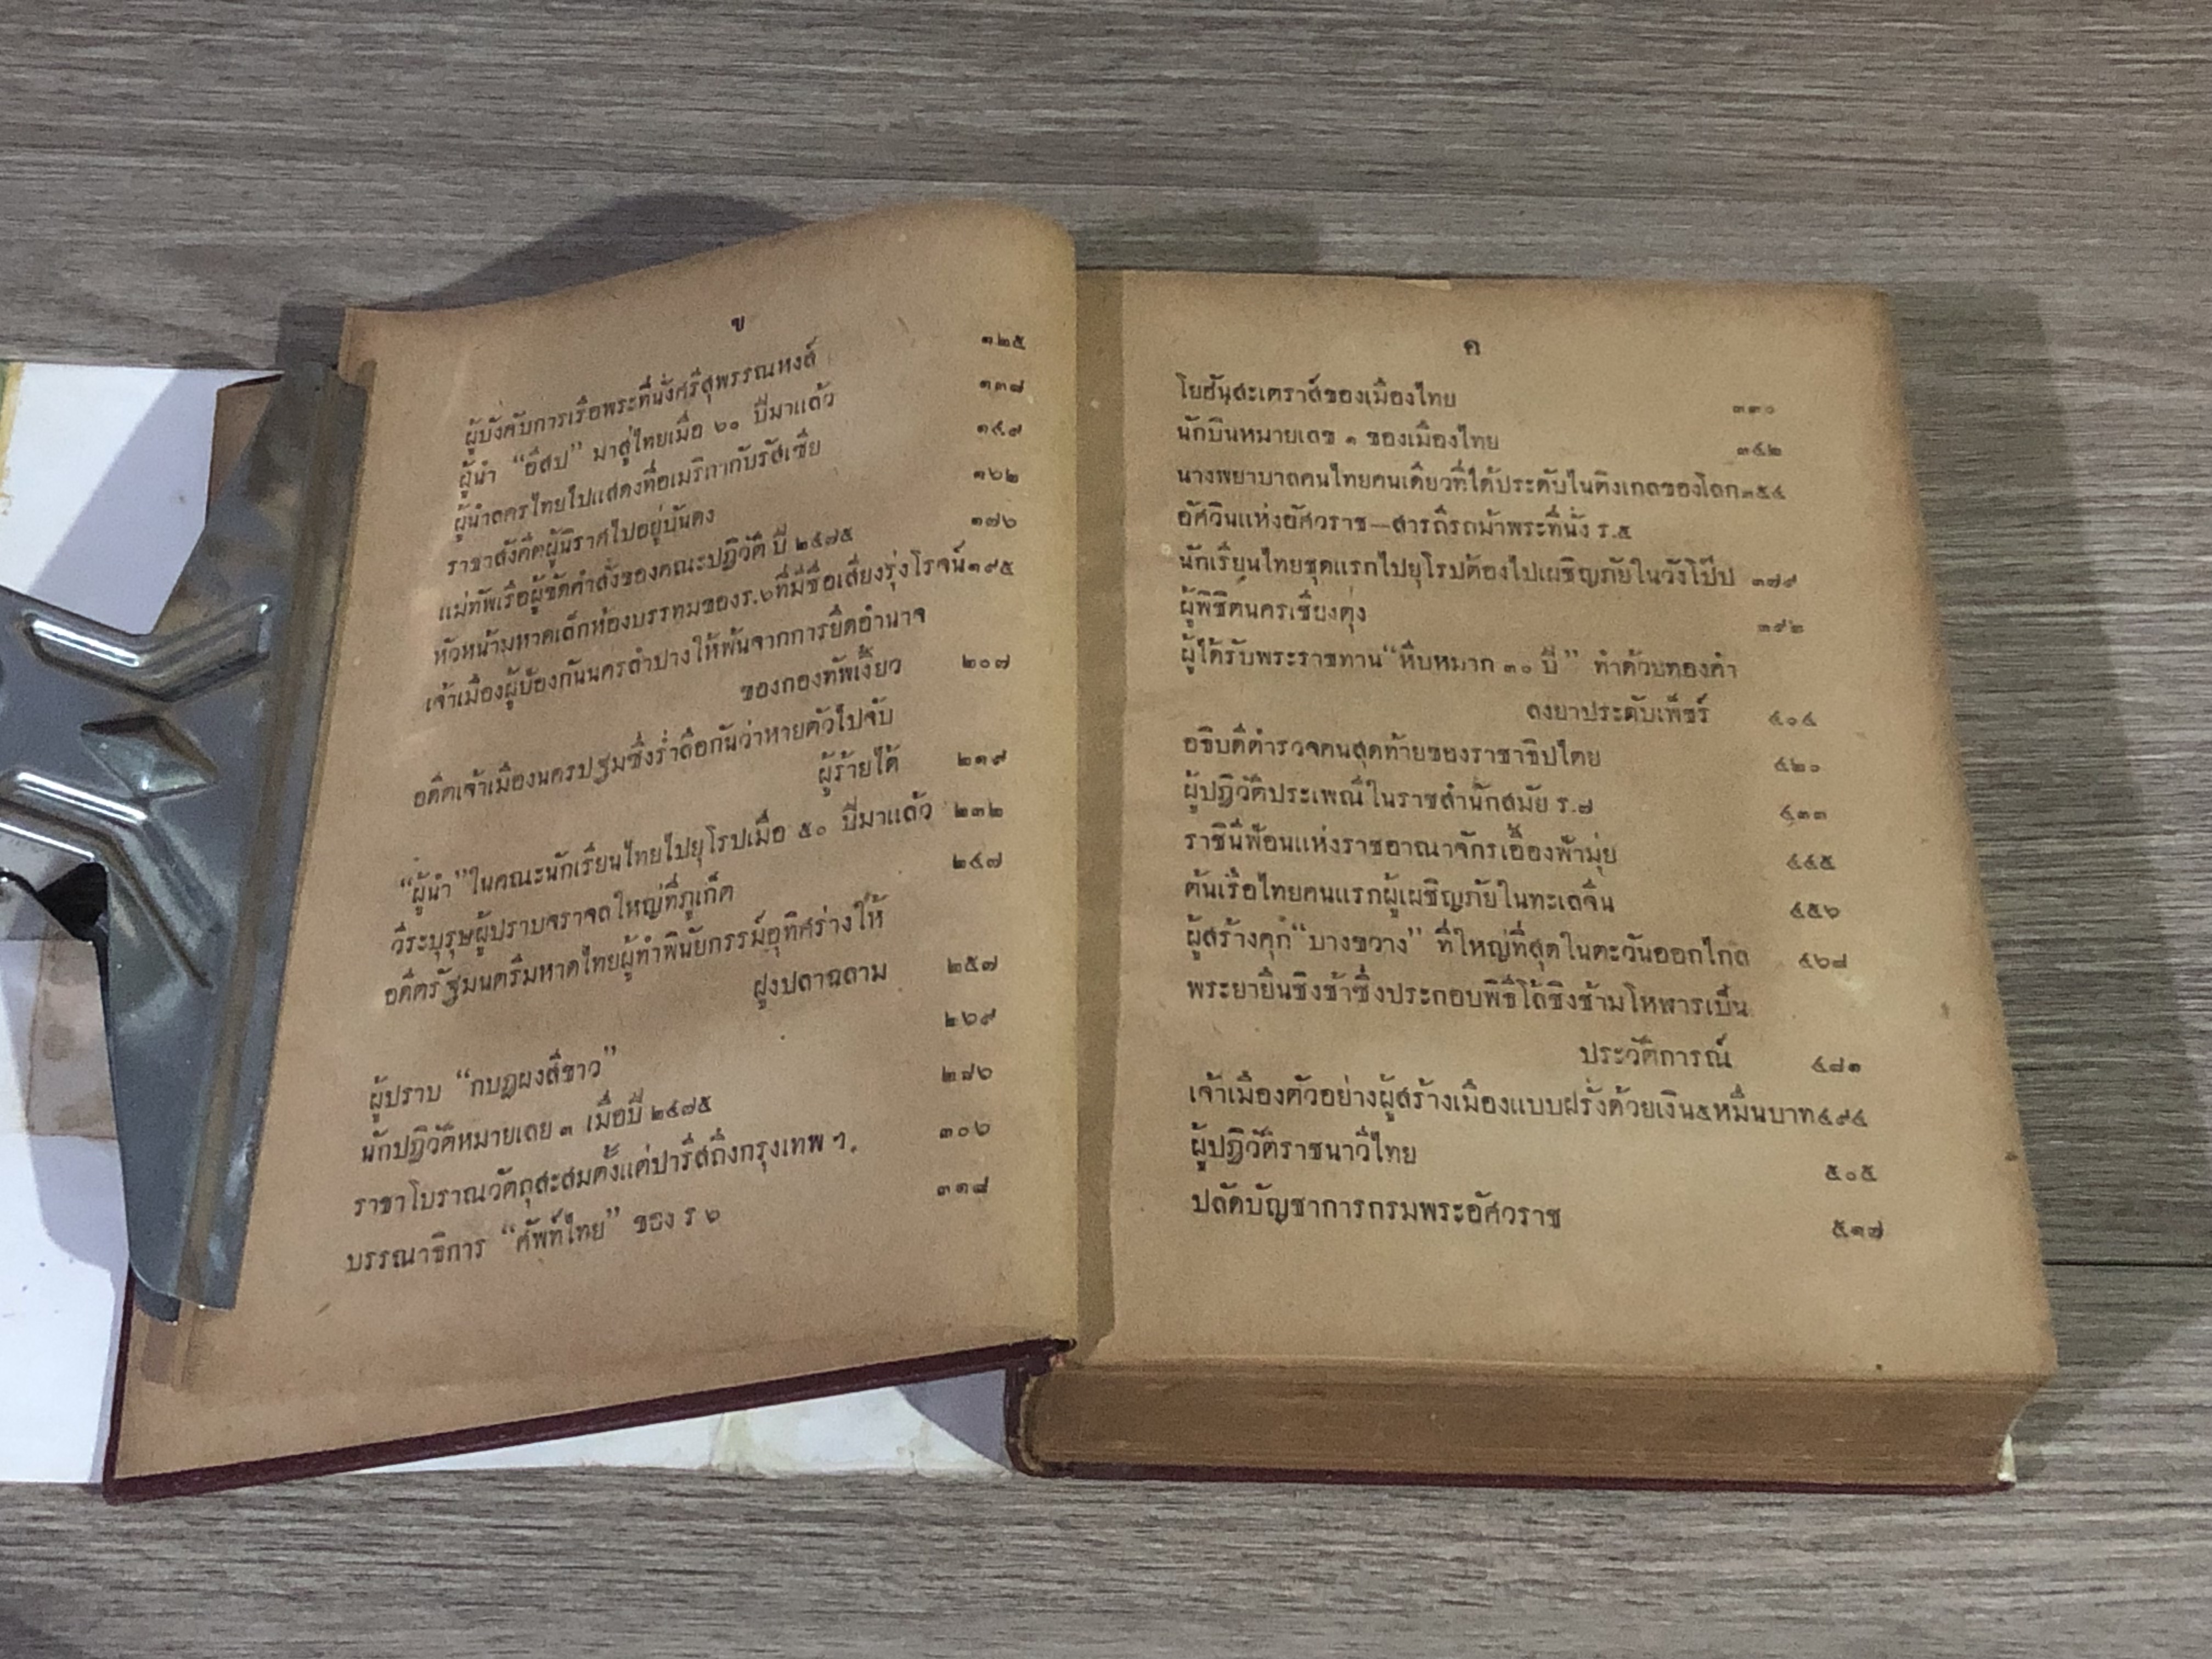 ข
ผู้บังคับการเรือพระที่นั่งศรีสุพรรณหงส์ ๑๒๕
ผู้นำ “อีสป” มาสู่ไทยเมื่อ ๖๐ ปีมาแล้ว ๑๓๘
ผู้นำลครไทยไปแสดงที่อเมริกากับรัสเซีย ๑๔๙
ราชาสังคีตผู้นิราศไปอยู่บันดง ๑๖๒
แม่ทัพเรือผู้ขัดคำสั่งของคณะปฏิวัติ ปี ๒๔๗๕ ๑๗๖
หัวหน้ามหาดเล็กห้องบรรทมของร.๖ที่มีชื่อเสียงรุ่งโรจน์๑๙๕
เจ้าเมืองผู้ป้องกันนครลำปางให้พ้นจากการยึดอำนาจ
ของกองทัพเงี้ยว ๒๐๗
อดีตเจ้าเมืองนครปฐมซึ่งร่ำลือกันว่าหายตัวไปจับ
ผู้ร้ายได้ ๒๑๙
“ผู้นำ”ในคณะนักเรียนไทยไปยุโรปเมื่อ ๕๐ ปีมาแล้ว ๒๓๒
วีระบุรุษผู้ปราบจราจลใหญ่ที่ภูเก็ต ๒๔๗
อดีตรัฐมนตรีมหาดไทยผู้ทำพินัยกรรม์อุทิศร่างให้
ฝูงปลาฉลาม ๒๕๗
ผู้ปราบ “กบฎผงสีขาว” ๒๖๙
นักปฏิวัติหมายเลย ๓ เมื่อปี ๒๔๗๕ ๒๘๖
ราชาโบราณวัตถุสะสมตั้งแต่ปารีสถึงกรุงเทพ ฯ. ๓๐๖
บรรณาธิการ “ศัพท์ไทย” ของ ร ๖ ๓๑๘
ค
โยฮันสะเตราส์ของเมืองไทย ๓๓๐
นักบินหมายเลข ๑ ของเมืองไทย ๓๔๒
นางพยาบาลคนไทยคนเดียวที่ได้ประดับไนติงเกลของโลก๓๕๔
อัศวินแห่งอัศวราช—สารถีรถม้าพระที่นั่ง ร.๕
นักเรียนไทยชุดแรกไปยุโรปต้องไปเผชิญภัยในวังโป๊ป ๓๗๙
ผู้พิชิตนครเชียงตุง ๓๙๒
ผู้ได้รับพระราชทาน“หีบหมาก ๓๐ ปี” ทำด้วยทองคำ
ลงยาประดับเพ็ชร์ ๔๐๔
อธิบดีตำรวจคนสุดท้ายของราชาธิปไตย ๔๒๐
ผู้ปฏิวัติประเพณีในราชสำนักสมัย ร.๗ ๔๓๓
ราชินีฟ้อนแห่งราชอาณาจักรเอื้องฟ้ามุ่ย ๔๔๕
ต้นเรือไทยคนแรกผู้เผชิญภัยในทะเลจีน ๔๕๖
ผู้สร้างคุก“บางขวาง” ที่ใหญ่ที่สุดในตะวันออกไกล ๔๖๘
พระยายืนชิงช้าซึ่งประกอบพิธีโล้ชิงช้ามโหฬารเป็น
ประวัติการณ์ ๔๘๑
เจ้าเมืองตัวอย่างผู้สร้างเมืองแบบฝรั่งด้วยเงิน๕หมื่นบาท๔๙๔
ผู้ปฏิวัติราชนาวีไทย ๕๐๕
ปลัดบัญชาการกรมพระอัศวราช ๕๑๗